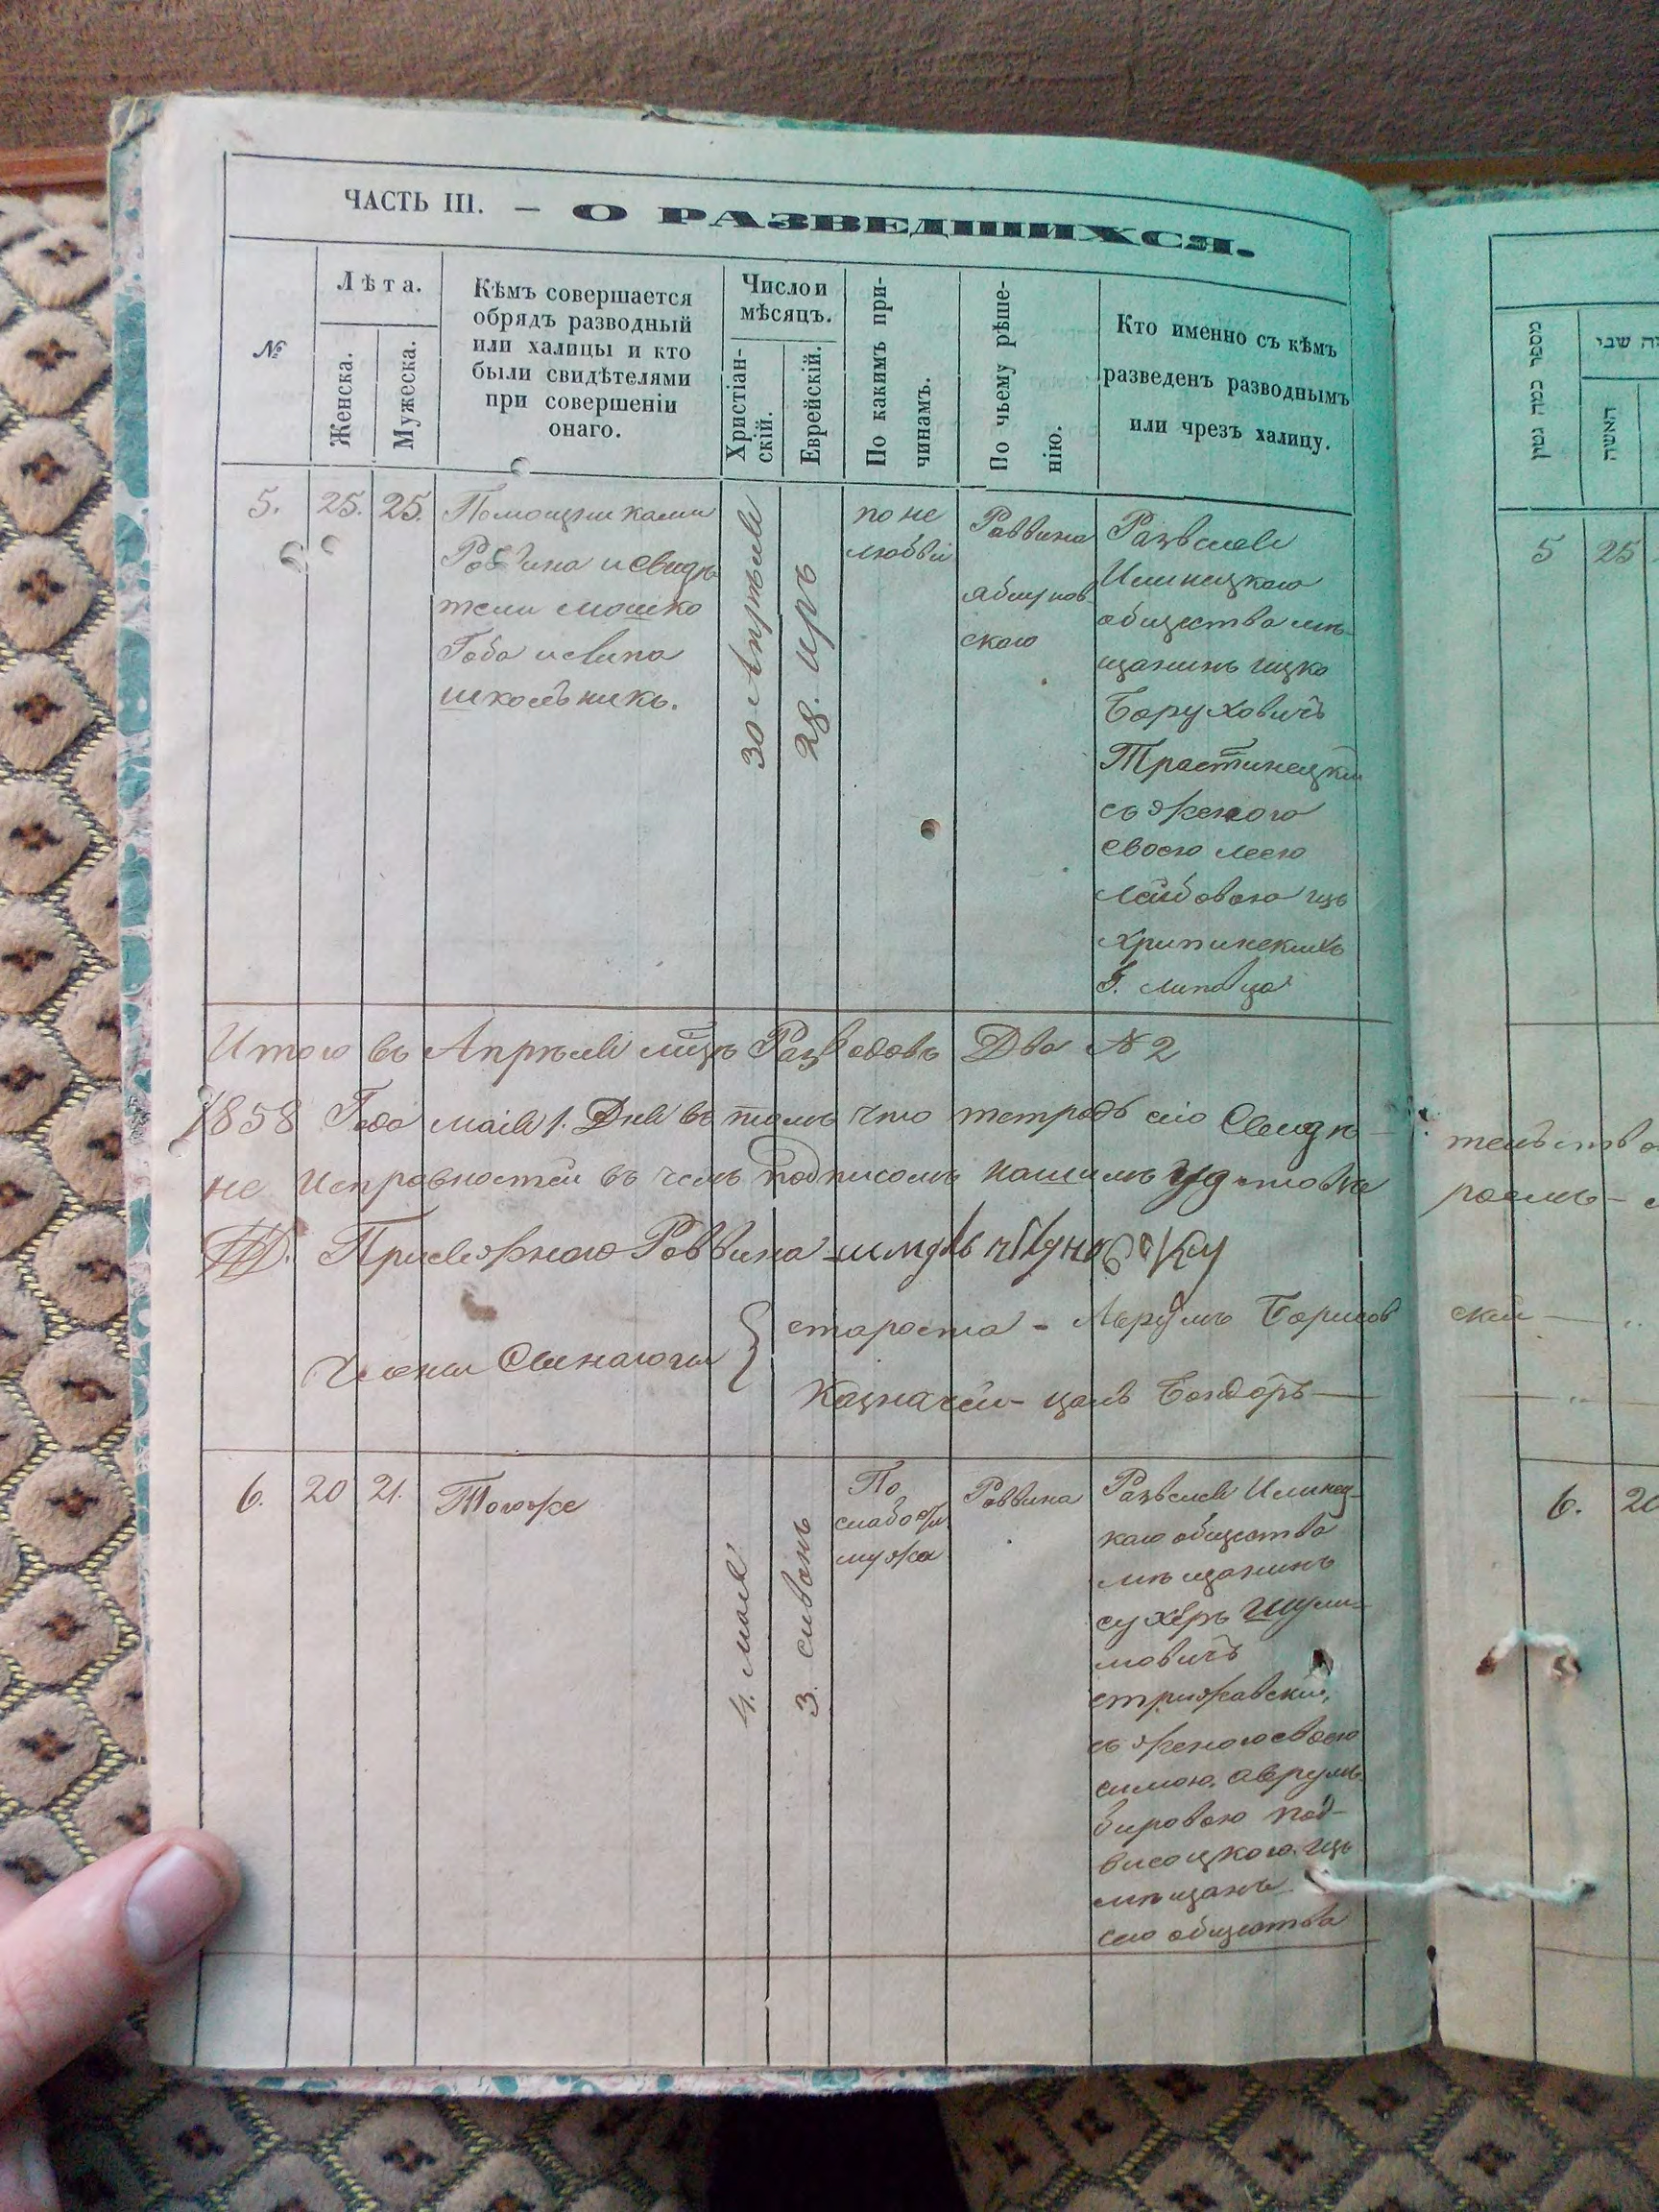 ЧАСТЬ III. — О РАЗВЕДШИХСЯ.
№
Лѣта.
Женска.
Мужеска.
Кѣмъ совершается
обрядъ разводный
или халицы и кто
были свидѣтелями
при совершеніи
онаго.
Число и
мѣсяцъ.
Христіан-
скій.
Еврейскій.
По какимъ при-
чинамъ.
По чьему рѣше-
нію.
Кто именно съ кѣмъ
разведенъ разводнымъ
или чрезъ халицу.
5.
25.
25.
Помощниками
Раввина и свидѣ
тели мошко
Гоба и
школьникъ.
30 Апрѣля
28. иръ
по не
любви
Раввина
скаго
Развелся
Илинецкаго
общества мѣ-
щанинъ ицко
Боруховичъ
Трастинецкій
съ женого
своею леею
лейбовою изъ
хрипинскихъ
Г. липовца
Итого въ Апрѣлѣ мцѣ Разводовъ Два № 2
1858 Года маія 1. Дня въ томъ что тетрадь сія Свидѣ
не исправностей въ чемъ подписомъ нашимъ
Раввина
Члены Синагоги
староста - Аврумъ Борисов
Казначей - Бондаръ
6.
20
21.
Тогоже
4. мая
3. сивонъ
По
слабости
мужа
Раввина
Развелся Илинец-
каго общества
мѣщанинъ
сухеръ Шули-
мовичъ
стрижавскій,
съ женого своею
симою. аврумъ
бировою под-
висоцкою. изъ
мѣщанъ
сего общества
מספר כמה גטין
האשה
5
25
тельство
6.
20